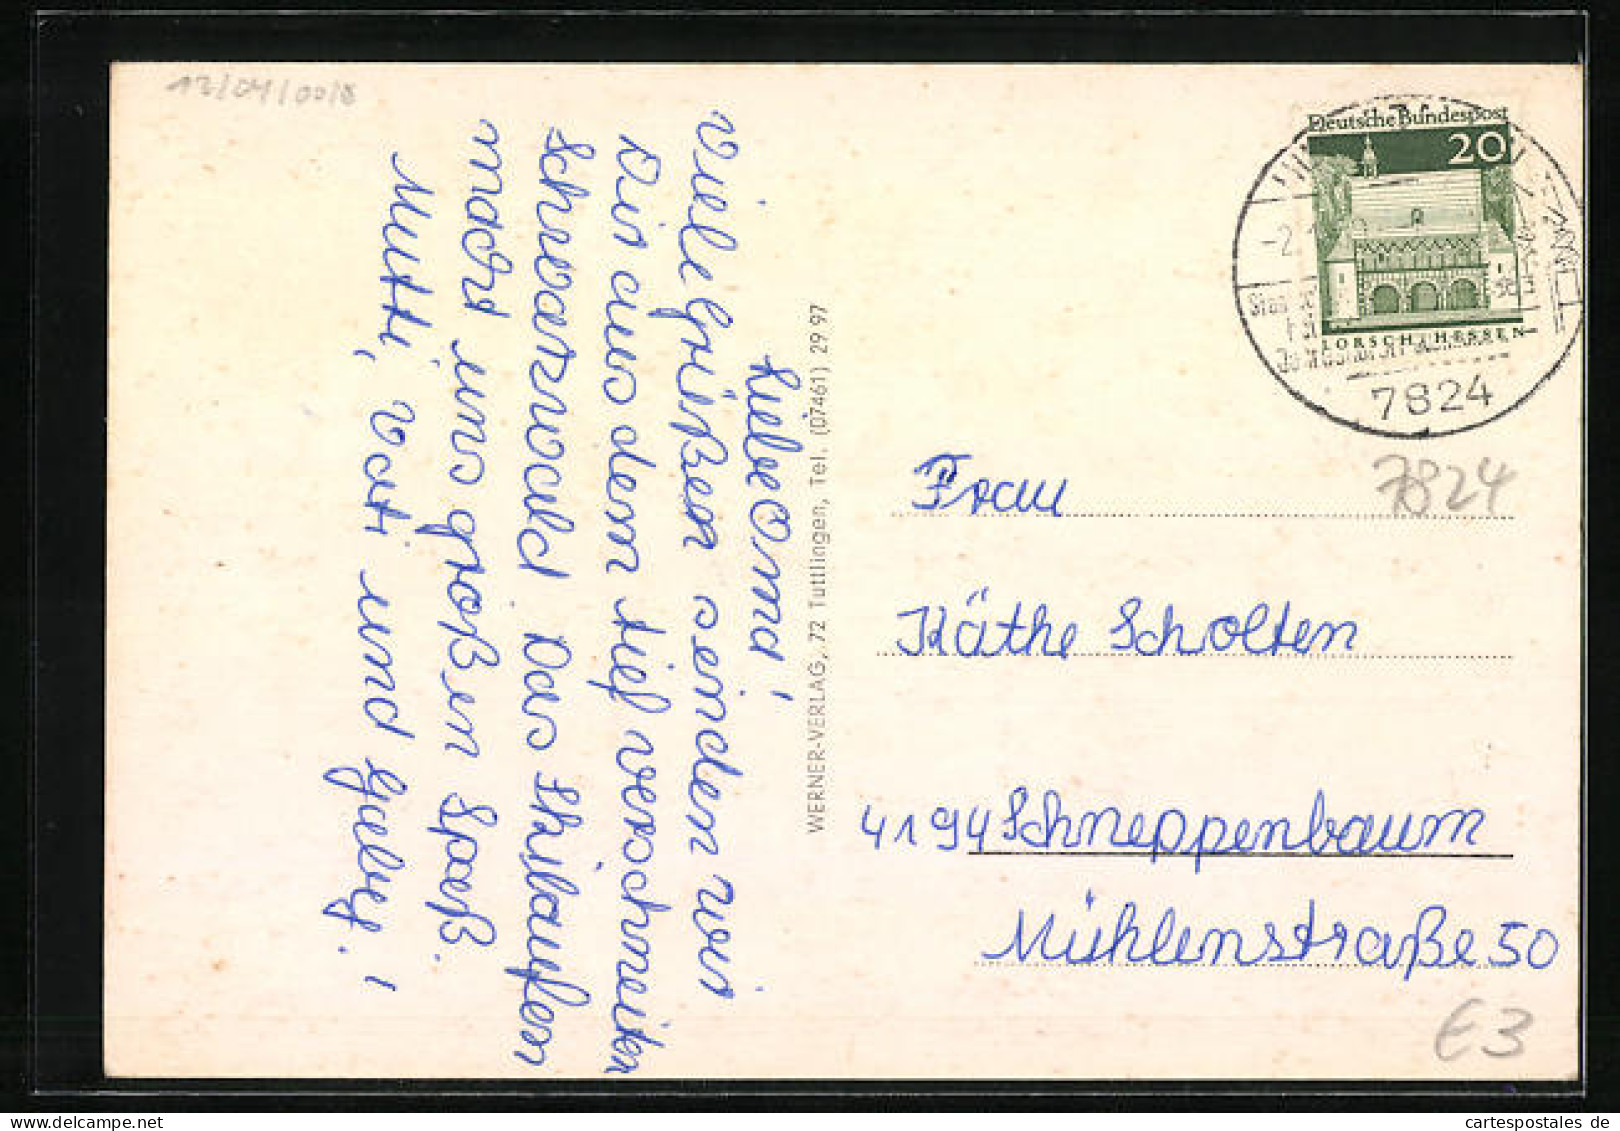 12/04/00/8
Liebe Oma!
Viele Grüßen senden wir
Dir aus dem tief verschneiten
Schwarzwald Das Skilaufen
macht uns großen Spaß.
Mutti, Vati und Gaby.
WERNER-VERLAG, 72 Tuttlingen, Tel. (07461) 29 97
Deutsche Bundespost
20
LORSCH/HESSEN
-2.
7824
7824
Frau
Käthe Scholten
4194 Schneppenbaum
Mühlenstraße 50
€3
cartespostales de